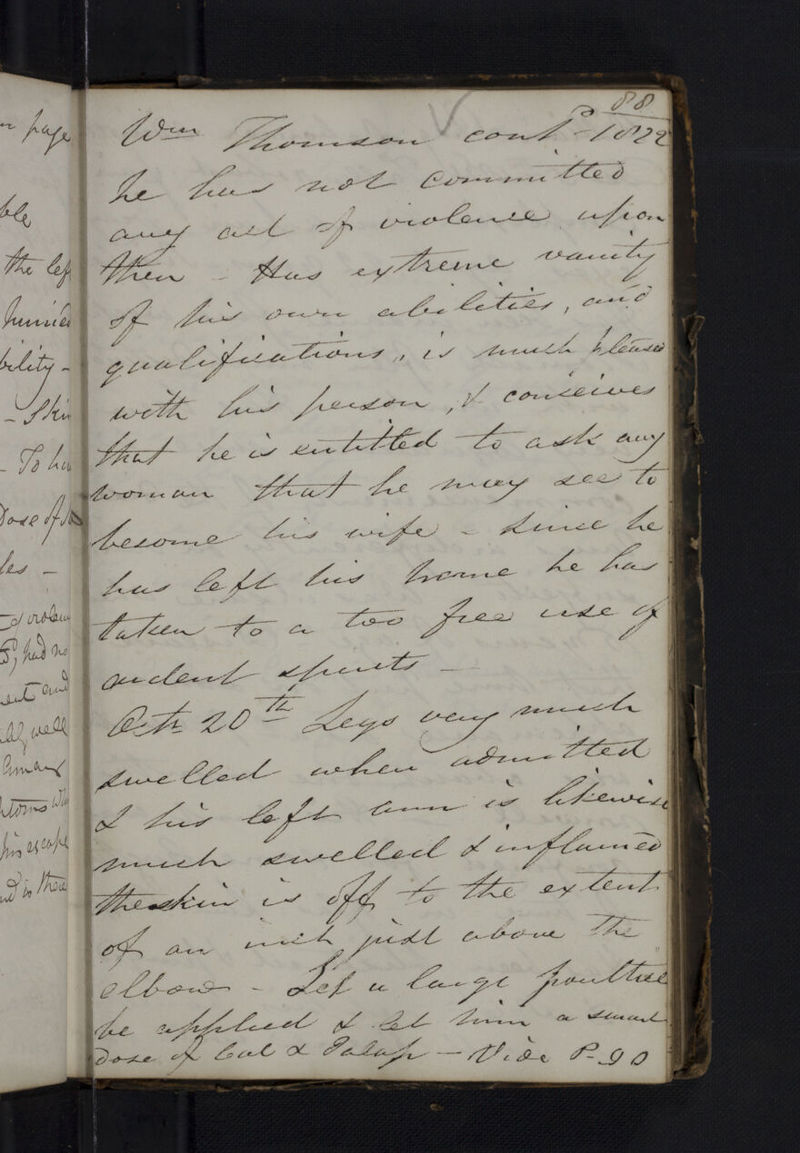 88
Wm Thomson contd 1822
he has not committed
any act of violence upon
them - Has extreme vanity
of his own abilities, and
qualifications, is much pleased
with his person, & conseives
that he is entitled to ask any
woman that he may see to
besome his wife - Since he
has left his home he has
taken to a too free use of
ardent spirits -
Octr 20th Legs very much
swelled when admitted
& his left arm is likewise
much swelled & inflamed
the skin is off to the extent
of an inch just above the
elbow - Let a large poultice
be applied & let him a smart
dose of Cal & Jalap - Vide P-90
page
the lef
bility -
- Skin
- To ha
Dose of
les -
had no
and
well
his escape